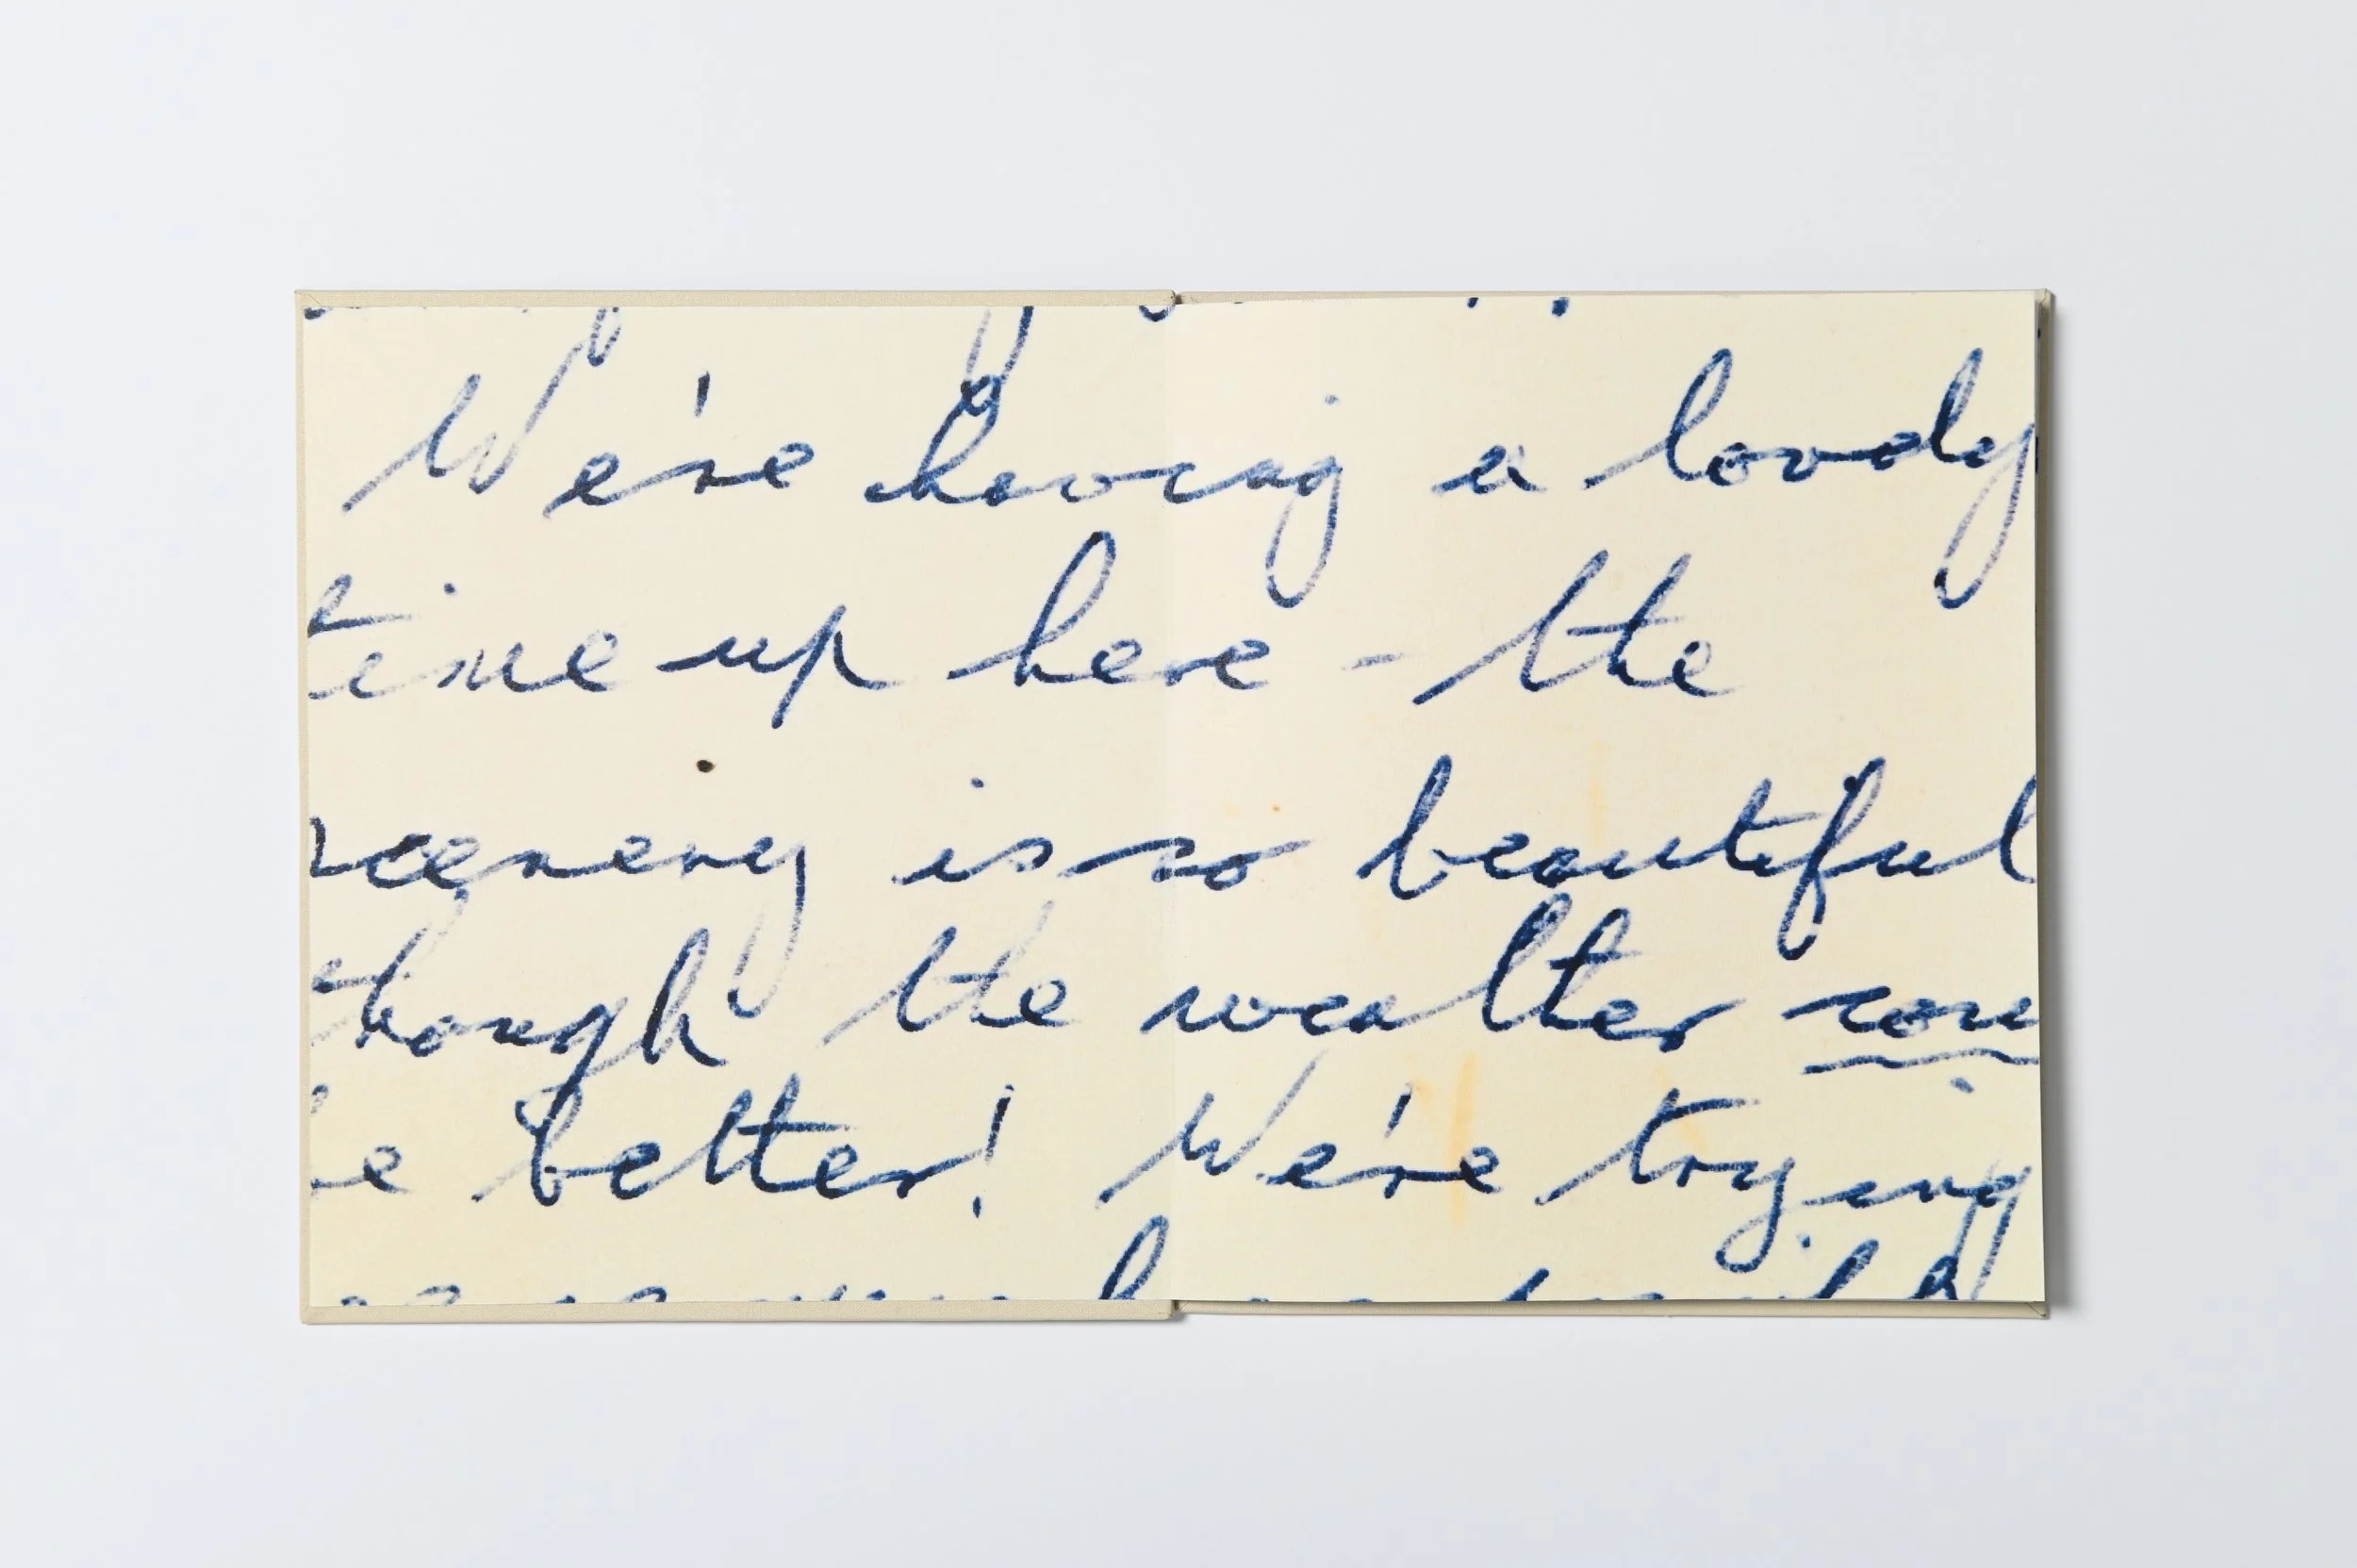 We're having a lovely
time up here - the
scenery is so beautiful
though the weather cou
be better! We're trying